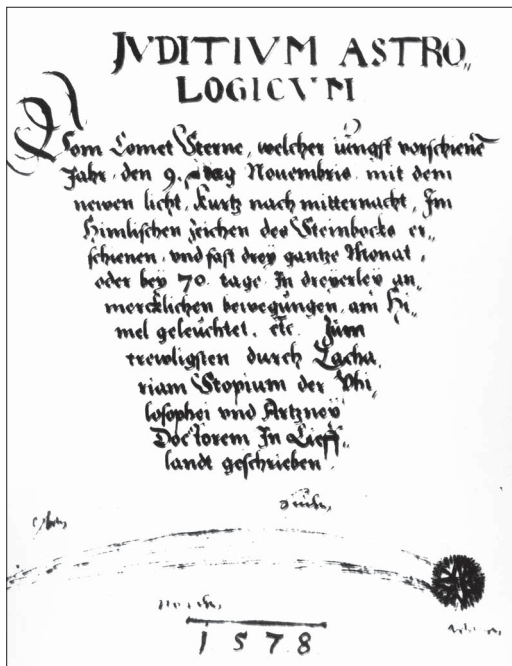 JVDITIVM ASTRO,,
LOGICVM
Vom Comet Sterne, welcher iüngst vorschienē
Jahr, den 9. tag Nouembris mit dem
newen licht, kurtz nach mitternacht, Im
Himlischen zeichen des Steinbocks er,,
schienen, vnd fast dreÿ gantze Monat,
oder beÿ 70 tage In dreÿerleÿ an,,
mercklichen bewegüngen, am Hi,,
mel geleüchtet, etc. Züm
trewligsten durch Zacha,,
riam Stopium der Phi,,
losophei vnd Artzneÿ
Doctorem In Lieff,,
landt geschrieben
1578